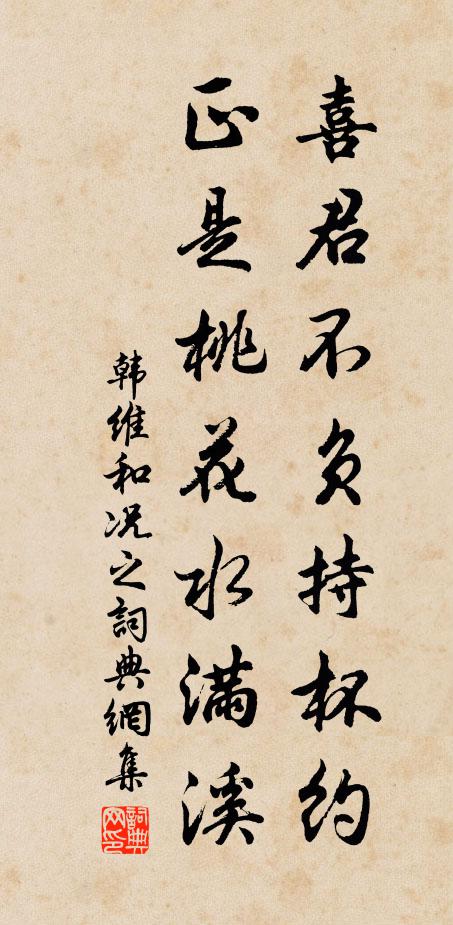 喜君不负持杯约
正是桃花水满溪
韩维和况之詞典網集
詞典网印